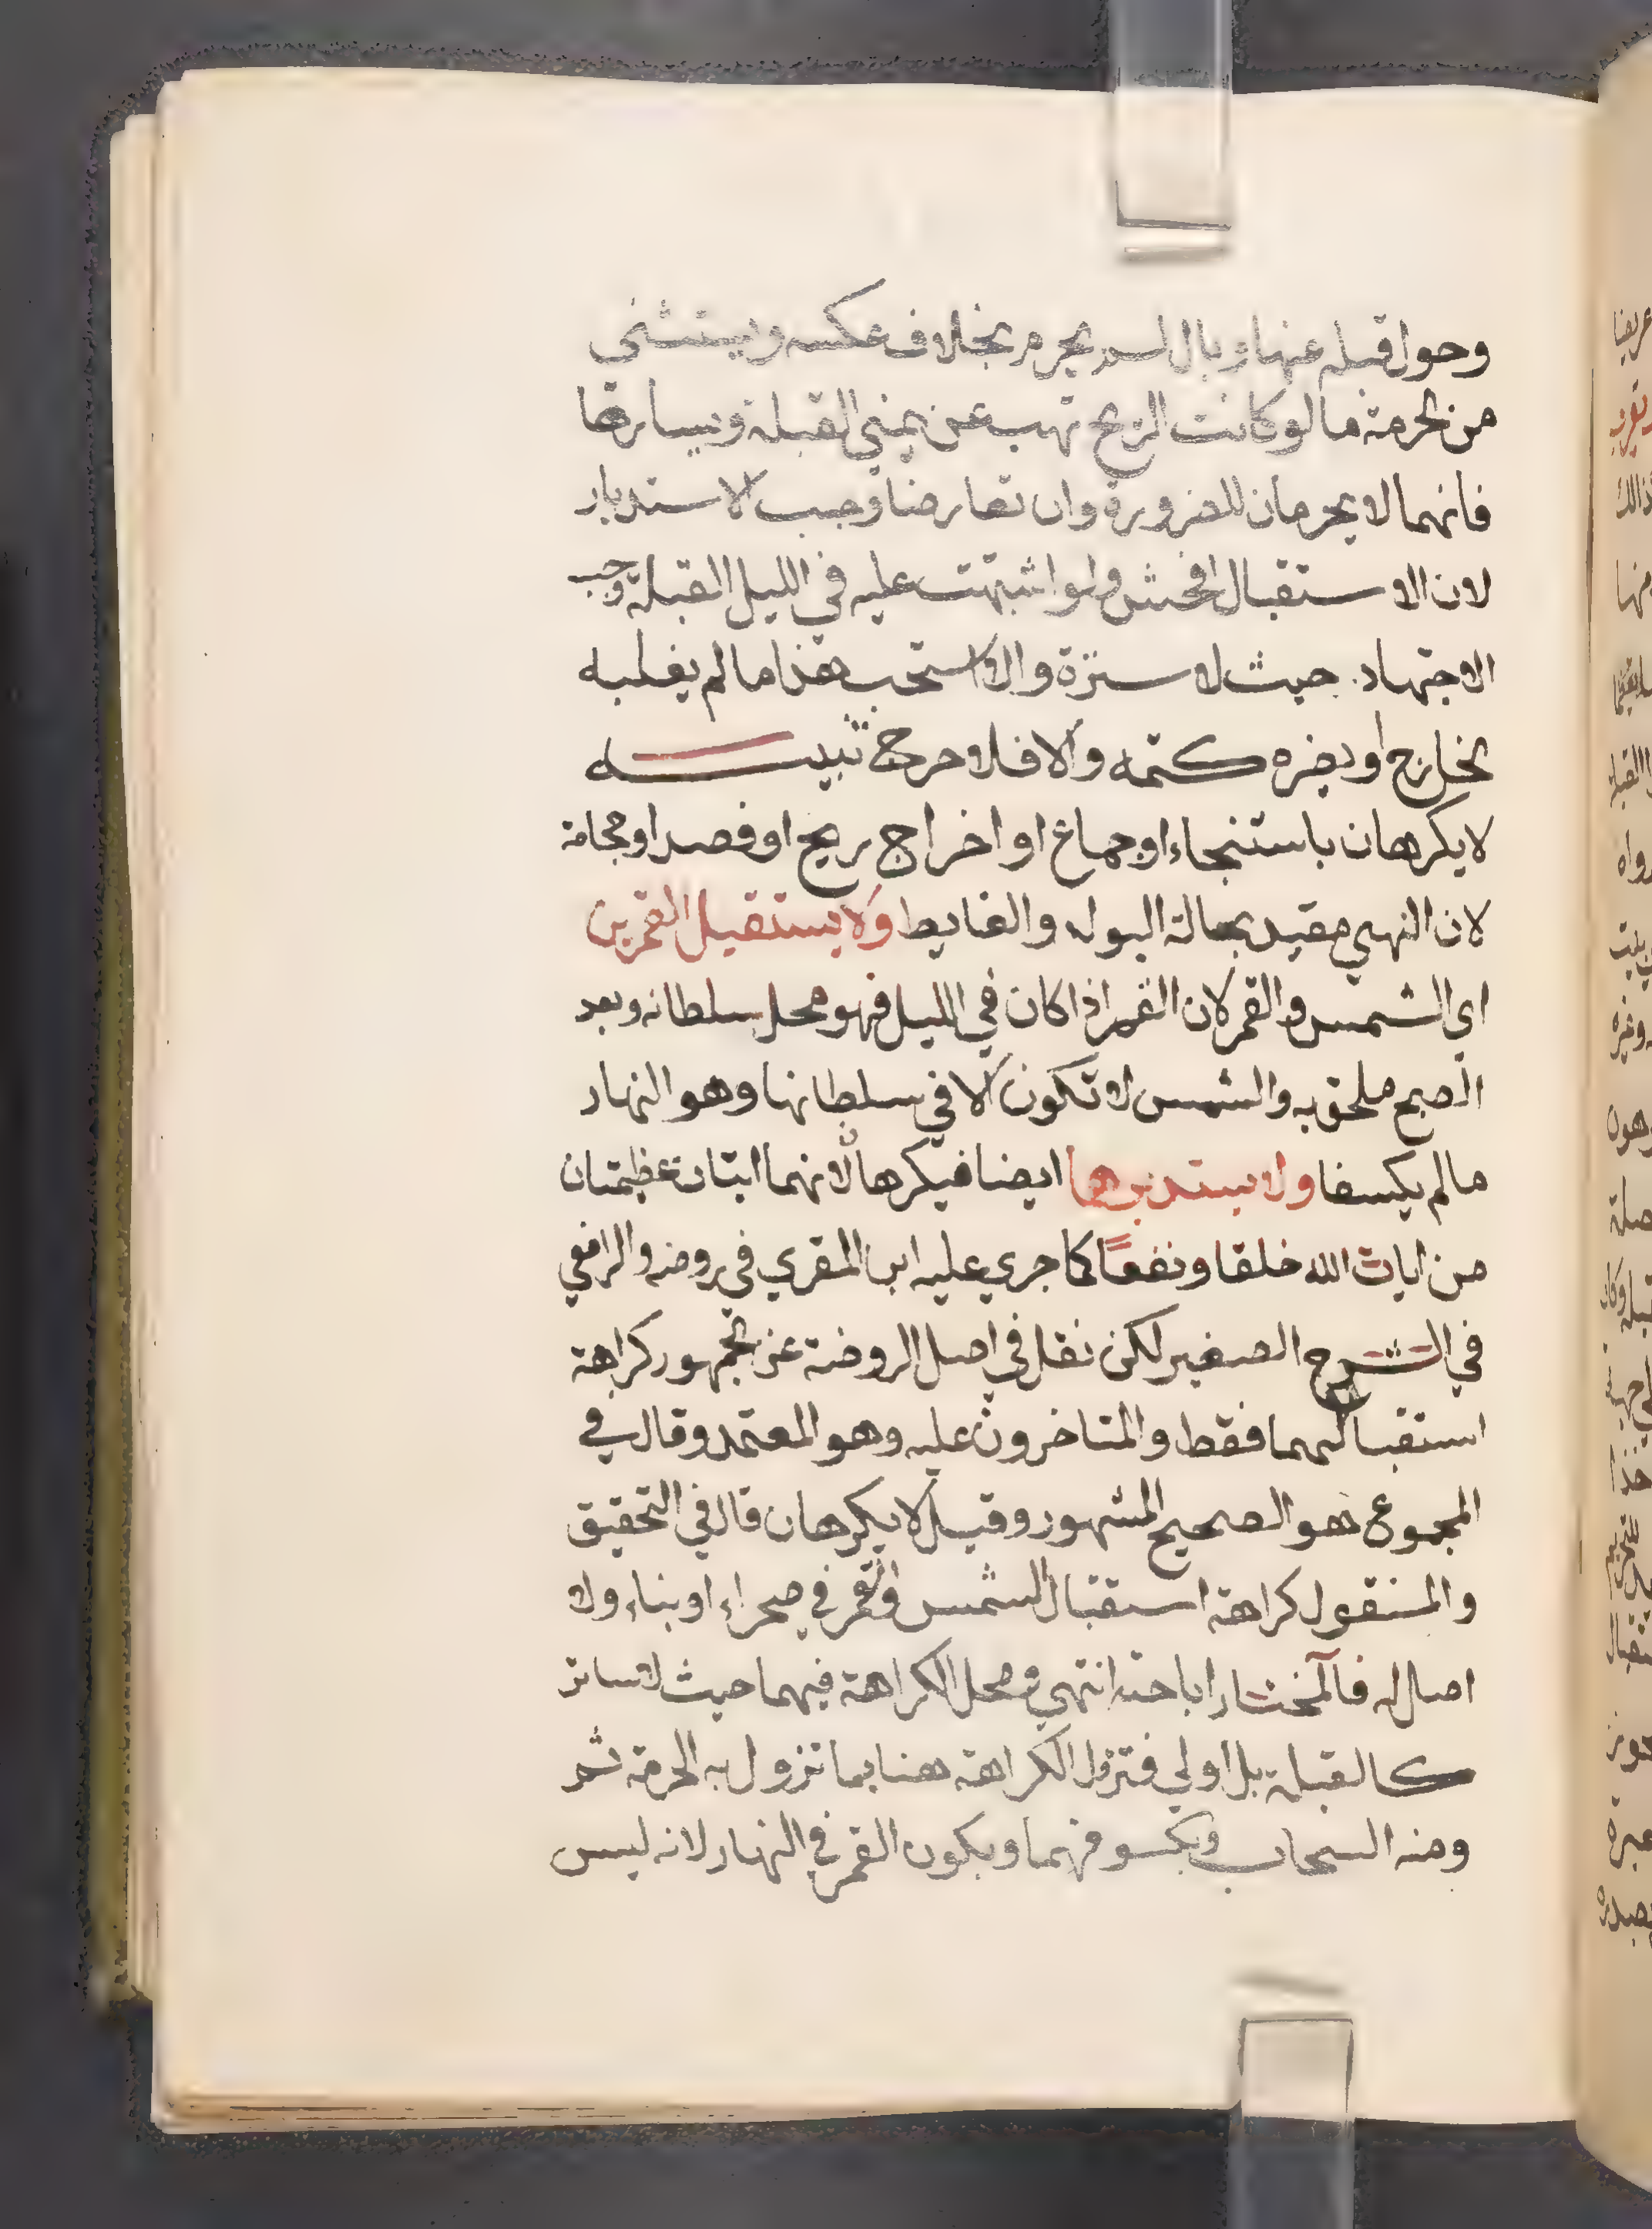 وحول قبله عنها وبال لم يحرم بخلاف عكسه ويستثنى
من الحرمة ما لو كانت الريح تهب عن يمنى القبلة ويسارها
فانهما لا يحرمان للضرورة وان تعارضا وجب الاستدبار
لان الاستقبال افحش ولو اشتبهت عليه في الليل القبلة وجب
الاجتهاد حيث لا سترة والا استحب هذا ما لم يغلبه
الخارج او يضره كتمه والا فلا حرج تنبيه
لا يكرهان باستنجاء او جماع او اخراج ريح او فصد او حجامة
لان النهي مقيد بحالة البول والغايط ولا يستقبل القمرين
اي الشمس والقمر لان القمر اذا كان في الليل فهو محل سلطانه وبعد
الصبح ملحق به والشمس لا تكون الا في سلطانها وهو النهار
ما لم يكسفا ولا يستدبرهما ايضا فيكرها لانهما ايتان عظيمتان
من ايات الله خلقا ونفعًا كما جرى عليه ابن المقري في روضه والرافعي
في الشرح الصغير لكن نقل في اصل الروضة عن الجمهور كراهة
استقبالهما فقط والمتاخرون عليه وهو المعتمد وقال في
المجموع هو الصحيح المشهور وقيل لا يكرهان قال في التحقيق
والمنقول كراهة استقبال الشمس والقمر في صحراء او بناء ولا
اصل له فالمختار اباحته انتهى ومحل الكراهة فيهما حيث لا ساتر
كالقبلة بل اولى فتزول الكراهة هنا بما تزول به الحرمة ثم
ومنه السحاب وبكسوفهما وبكون القمر في النهار لانه ليس